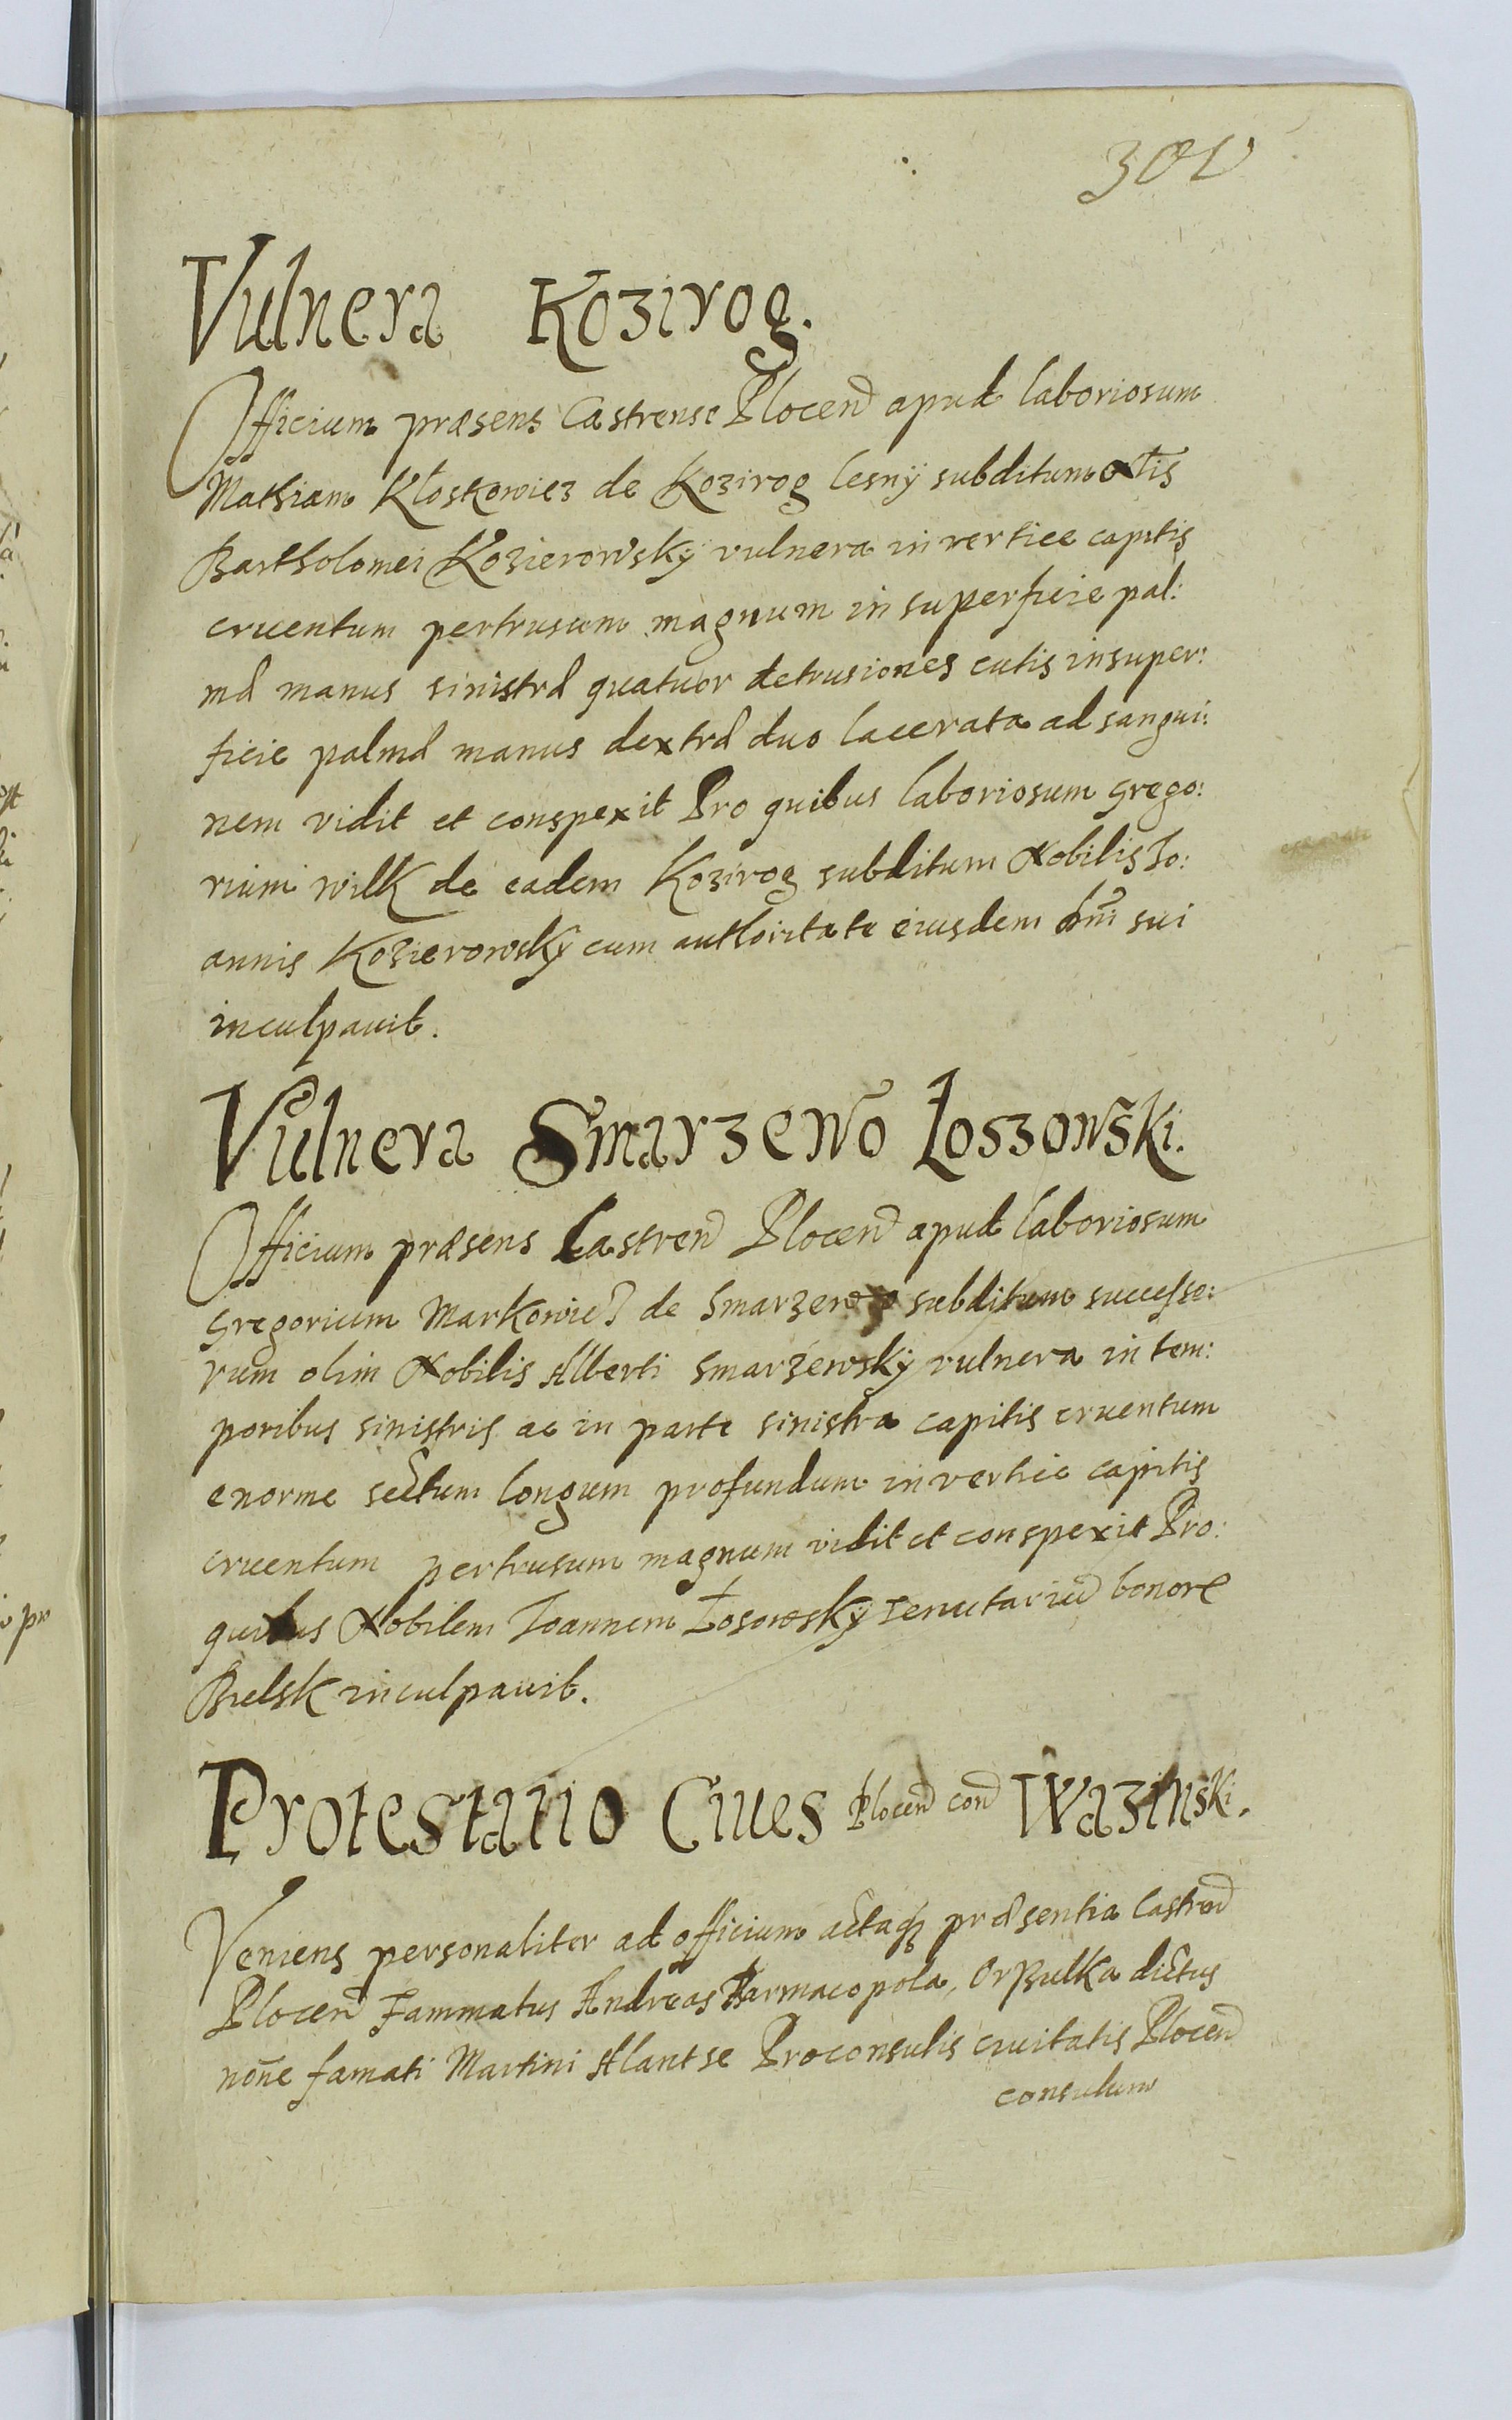 301
Vulnera Kozirog.
Officium præsens Castrense Plocen apud laboriosum
Mathiam Kloskowicz de Kozirog lesny subditum Nlis
Bartholomei Kozierowsky vulnera in vertice capitis
cruentum pertrusum magnum in superficie pal:
mæ manus sinistræ quatuor detrusiones cutis in super:
ficie palmæ manus dextræ duo lacerata ad sangui:
nem vidit et conspexit Pro quibus laboriosum Grego:
rium Wilk de eadem Kozirog subditum Nobilis Jo:
annis Kozierowsky cum authoritate eiusdem dni sui
inculpauit.
Vulnera Smarzewo Łoszowski.
Officium præsens Castren Plocen apud laboriosum
Gregorium Markowic de Smarzewo subditum successo:
rum olim Nobilis Alberti Smarzewsky vulnera in tem:
poribus sinistris ac in parte sinistra capitis cruentum
enorme sectum longum profundum in vertice capitis
cruentum pertrusum magnum vidit et conspexit Pro:
quibus Nobilem Joannem Łosowsky Tenutarium bonor
Bielsk inculpauit.
Protestatio Ciues Plocen con Wazinski.
Veniens personaliter ad officium actaq præsentia Castren
Plocen Fammatus Andreas Pharmacopola, Orpulka dictus
none famati Martini Alantse Proconsulis ciuitatis Plocen
consulum